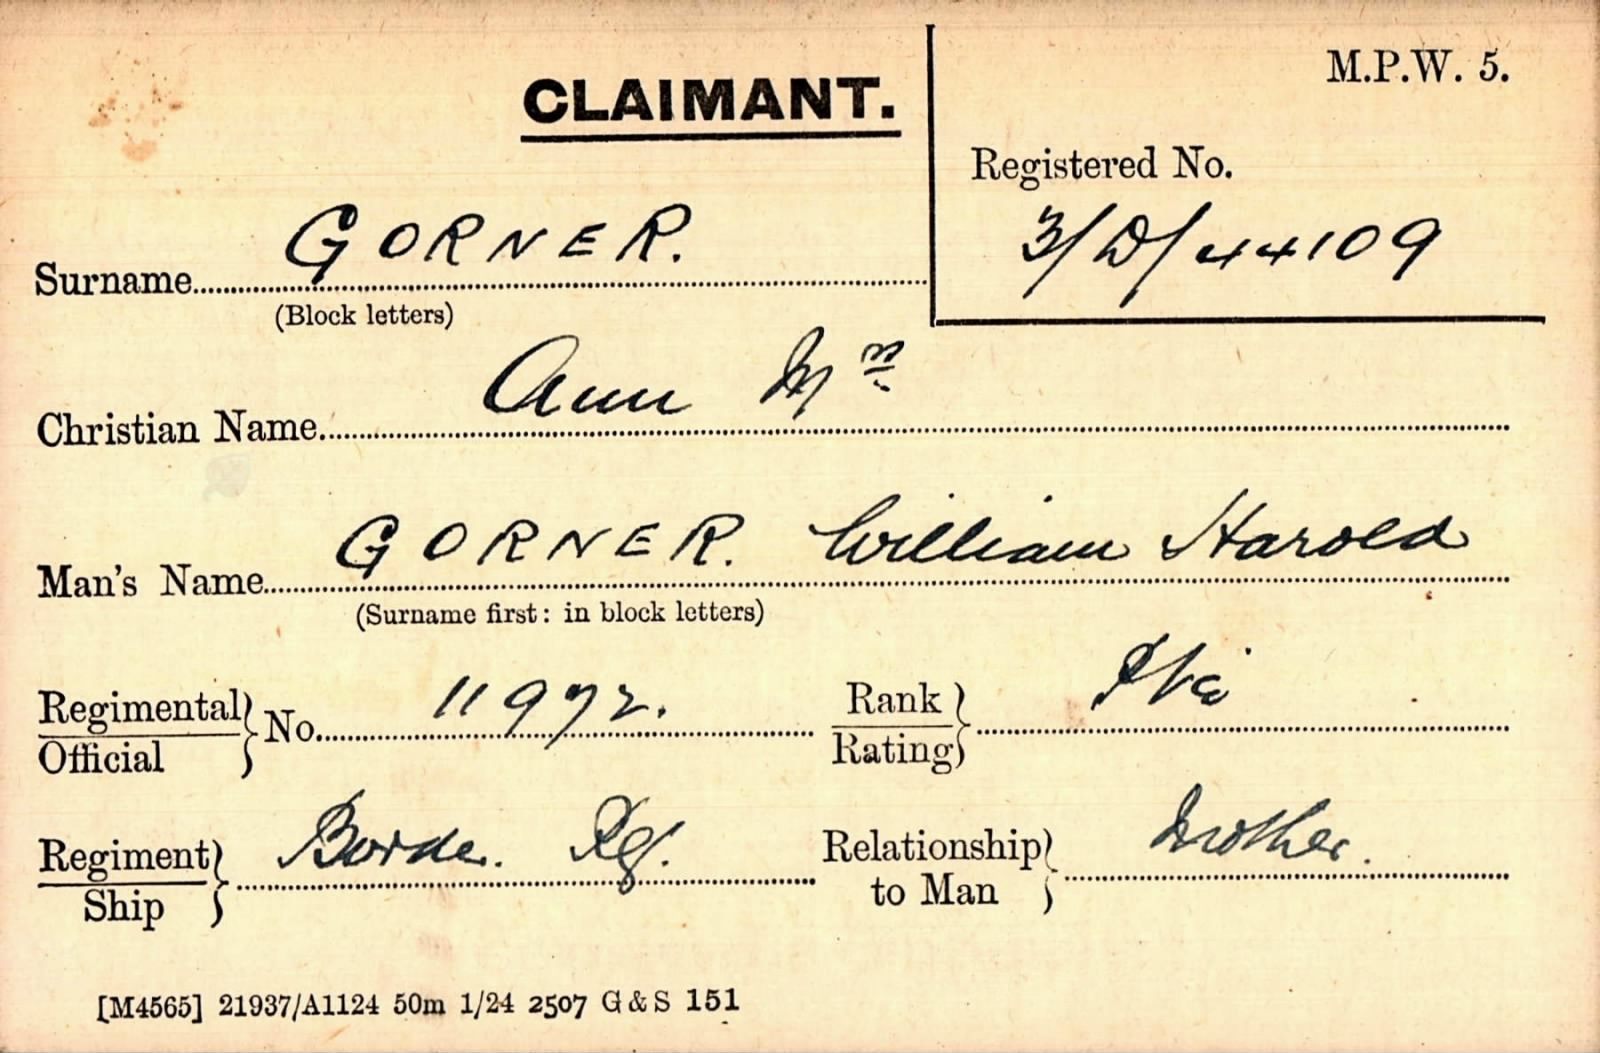 M.P.W. 5.
CLAIMANT.
Registered No.
3/D/44109
Surname GORNER.
(Block letters)
Christian Name Ann Mrs
Man's Name GORNER. William Harold
(Surname first: in block letters)
Regimental
Official } No. 11972.
Rank
Rating } Pte
Regiment
Ship } Border. Rg.
Relationship
to Man } Mother.
[M4565] 21937/A1124 50m 1/24 2507 G & S 151